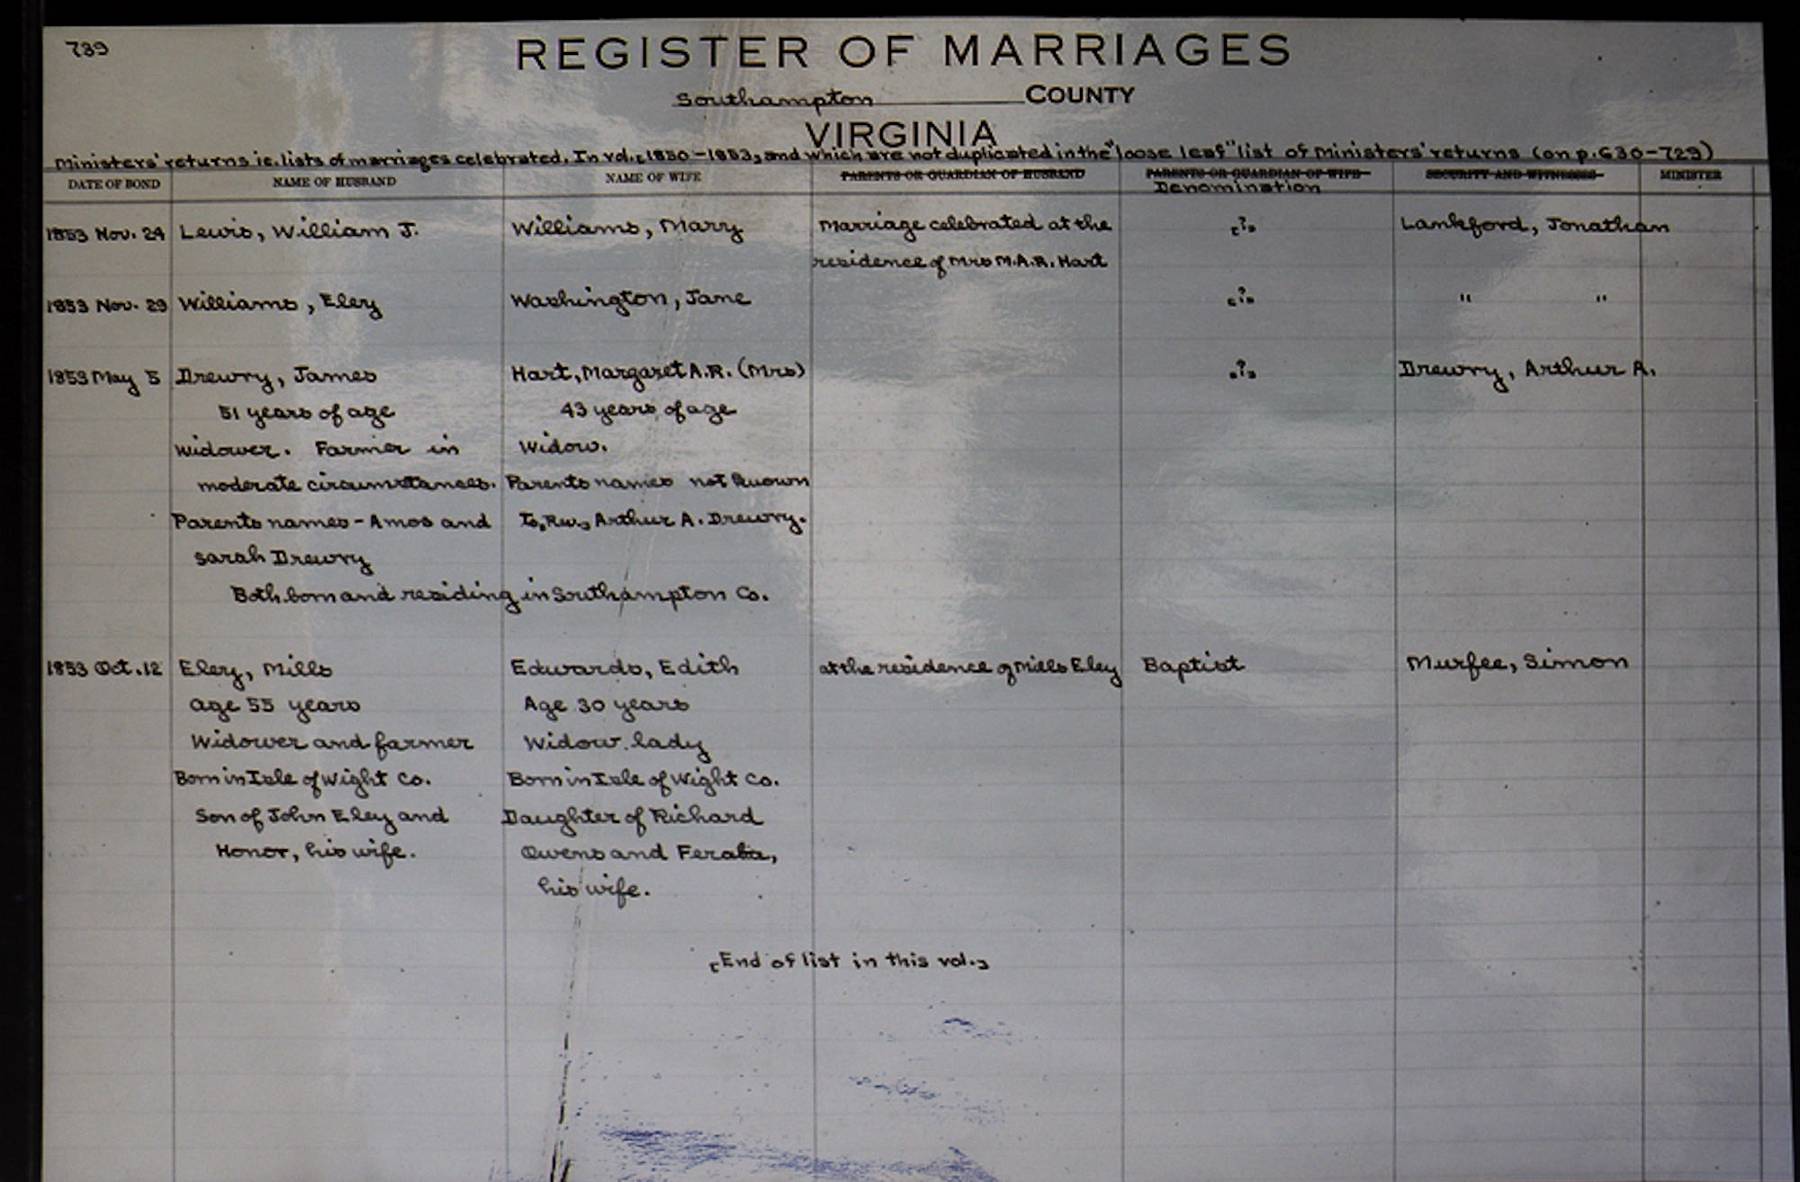 739
REGISTER OF MARRIAGES
Southampton COUNTY
VIRGINIA
Ministers' returns ie. lists of marriages celebrated. In vol. [1850-1853], and which are not duplicated in the "loose leaf" list of Ministers' returns (on p. 630-729)
DATE OF BOND NAME OF HUSBAND NAME OF WIFE PARENTS OR GUARDIAN OF HUSBAND PARENTS OR GUARDIAN OF WIFE SECURITY AND WITNESSES MINISTER
Denomination
1853 Nov. 24 Lewis, William J. Williams, Mary Marriage celebrated at the [?] Lankford, Jonathan
residence of Mrs M.A.R. Hart
1853 Nov. 29 Williams, Eley Washington, Jane [?] " "
1853 May 5 Drewry, James Hart, Margaret A.R. (Mrs) [?] Drewry, Arthur A.
51 years of age 43 years of age
Widower. Farmer in Widow.
moderate circumstances. Parents names not known
Parents names - Amos and to, Rev., Arthur A. Drewry.
Sarah Drewry
Both born and residing in Southampton Co.
1853 Oct. 12 Eley, Mills Edwards, Edith at the residence of Mills Eley Baptist Murfee, Simon
Age 55 years Age 30 years
Widower and farmer Widow lady
Born in Isle of Wight Co. Born in Isle of Wight Co.
Son of John Eley and Daughter of Richard
Honor, his wife. Owens and Feraba,
his wife.
[End of list in this vol.]